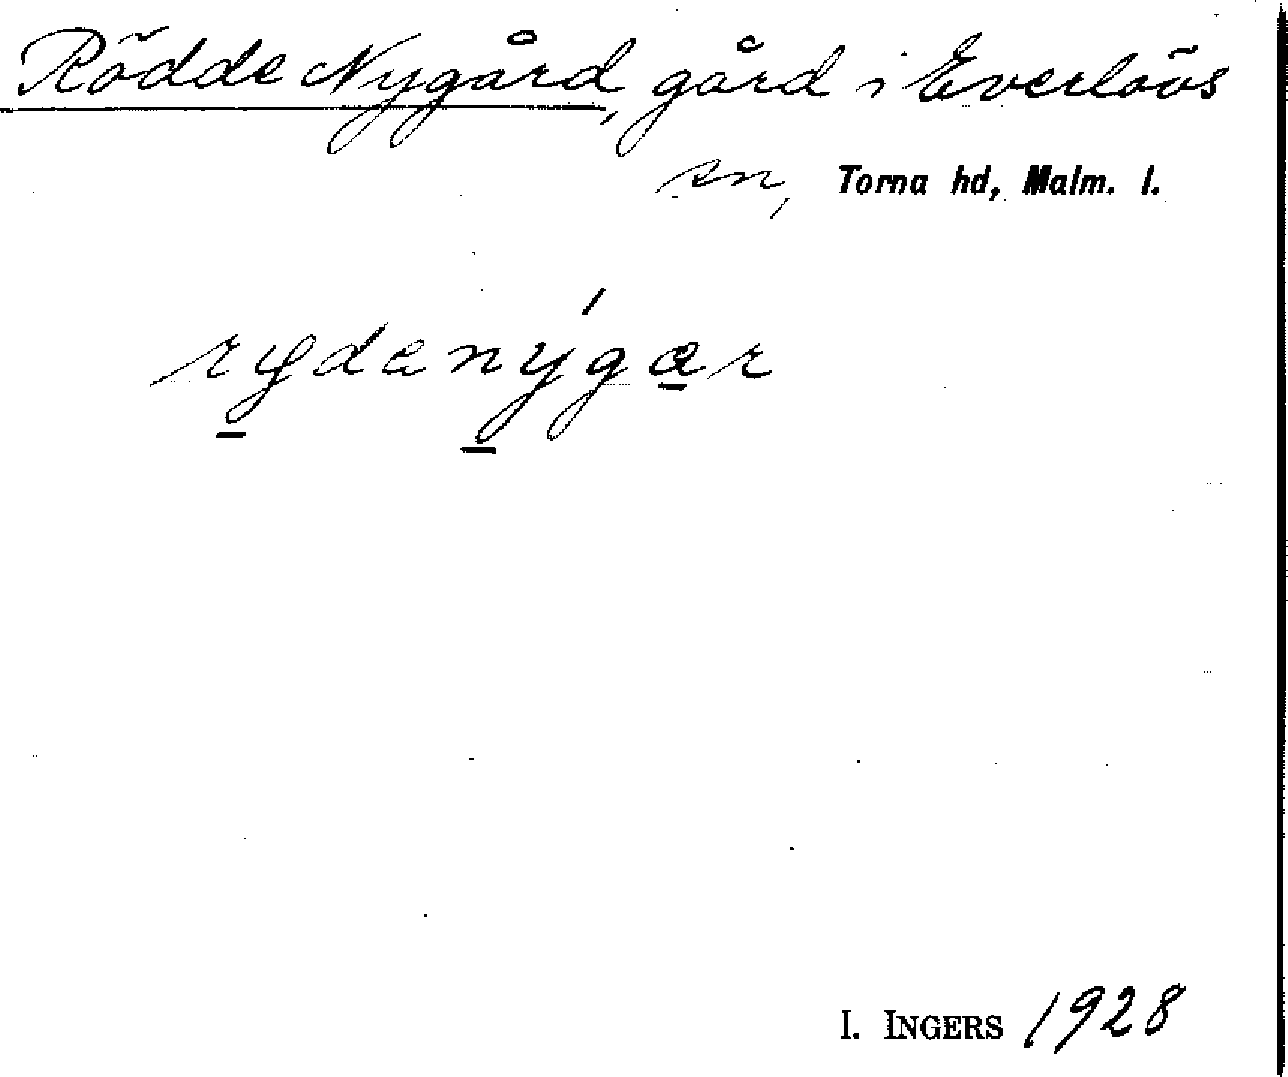 Rödde Nygård, gård i Everlöös
sn, Torna hd, Malm. l.
rydenýgar
I. INGERS 1928